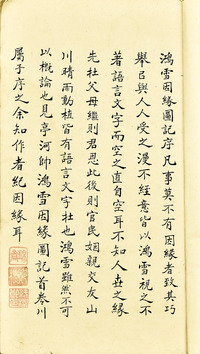 鴻雪因緣圖記序凡事莫不有因緣者致其巧
舉己與人人受之漫不經意皆以鴻雪視之不
著語言文字而空之直自空耳不知人世之緣
先社父母繼則君恩此後則官民姻親交友山
川晴雨動植皆有語言文字社也鴻雪雖然不可
以概論也見亭河帥鴻雪因緣圖記首卷川
屬予序之余知作者紀因緣耳